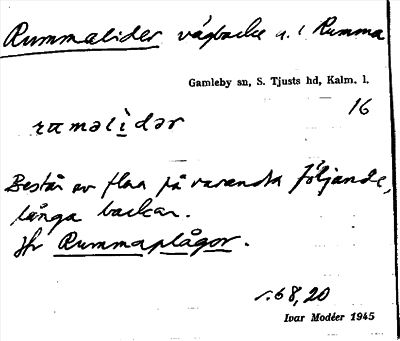 Rummalider vägbacke a. i Rumma
Gamleby sn, S. Tjusts hd, Kalm. l.
16
rɷməlìdər
Består av flera på varandra följande,
långa backar.
Jfr Rummaplågor.
r. 68, 20
Ivar Modéer 1945